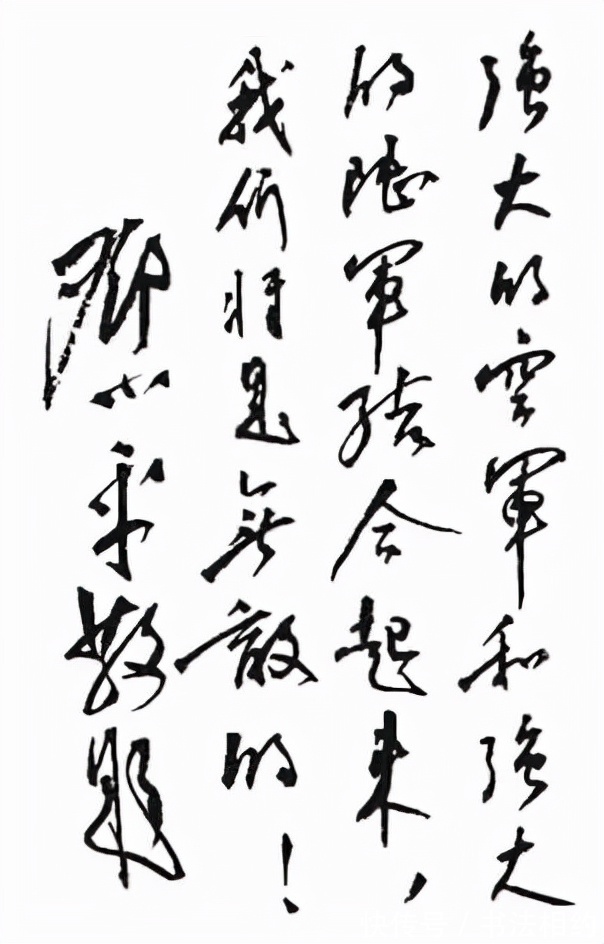 強大的空軍和強大
的陸軍結合起來，
我们将是無敵的！
鄧小平敬題